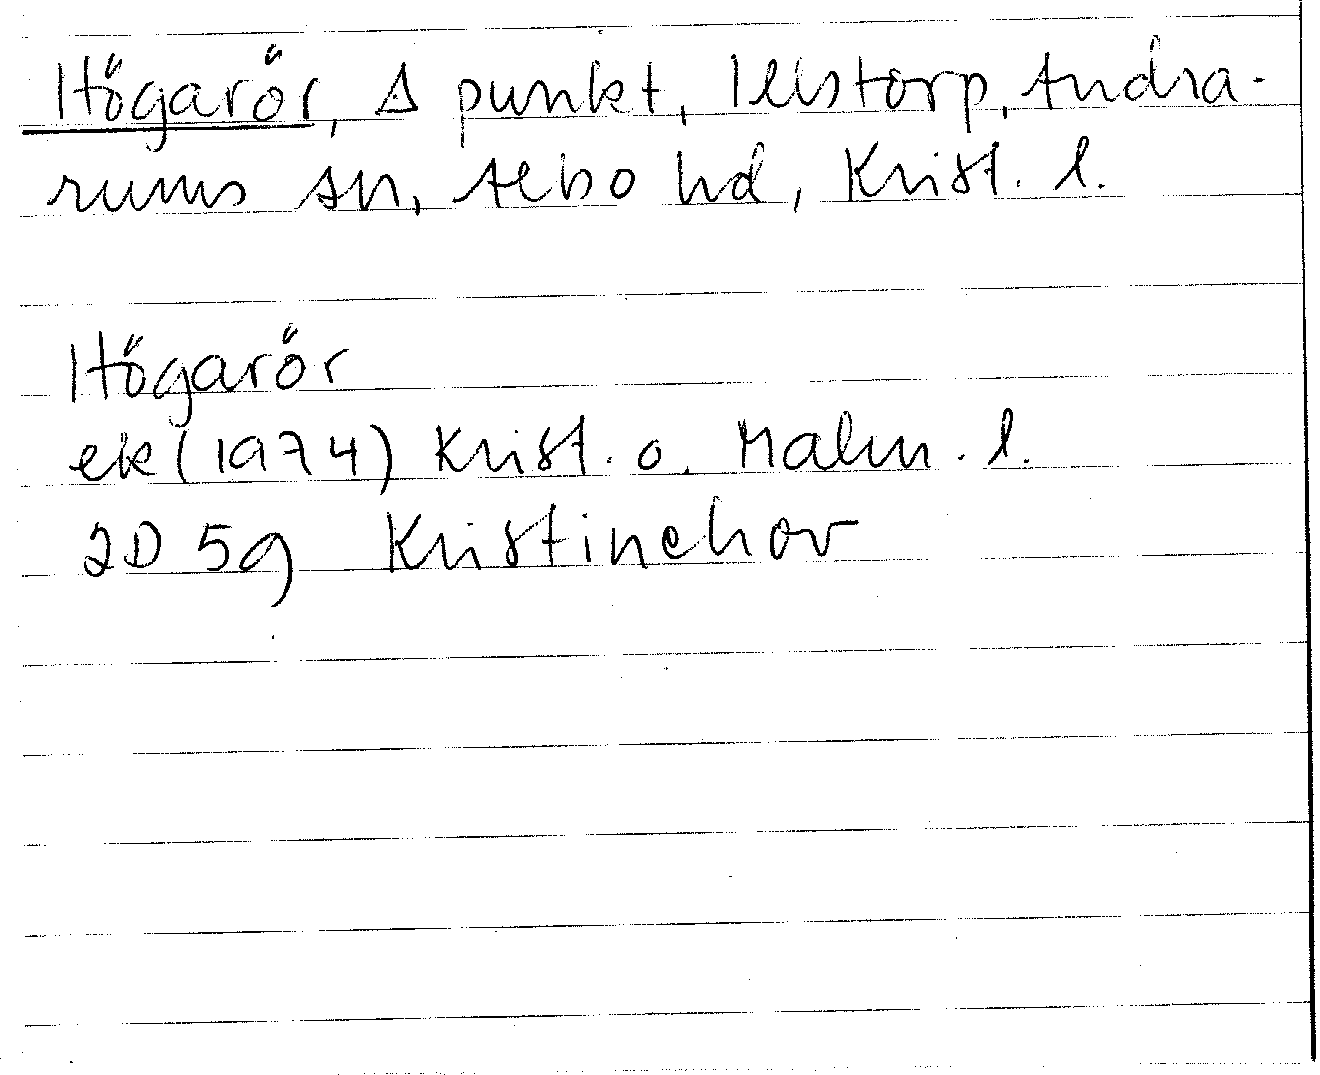 Högarör, Δ punkt, Illstorp, Andra-
rums sn, Albo hd, Krist. l.
Högarör
ek (1974) Krist. o. Malm. l.
2D 5g Kristinehov